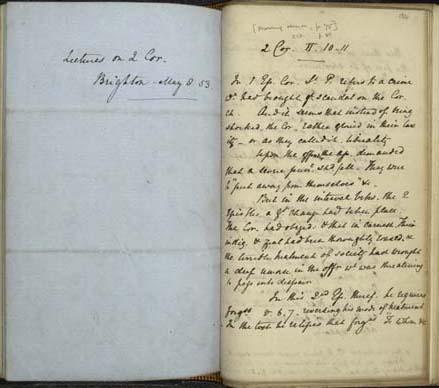 Lectures on 2 Cor.
Brighton - May 8. 53.
134
2 Cor. II. 10-11
In 1 Ep. Cor. St. P. refers to a crime
wh. had brought gt. scandal on the Cor.
Ch. And it seems that instead of being
shocked, the Cor. rather gloried in their lax
ity - or as they called it, liberality
Upon the offr. the Ap. demanded
that a severe punt. shd. fall. They were
to "put away from themselves" &c.
But in the interval betw. the 2
Epistles a gt. change had taken place.
The Cor. had obeyed. & that in earnest. Their
indig. & zeal had been thoroughly roused, &
the terrible treatment of society had wrought
a deep remorse in the offr. wh. was threatening
to pass into despair.
In this 2nd Ep. therefore he requires
forgss. v. 6, 7. reversing his mode of treatment
In the text he ratifies that forgss. To whom &c